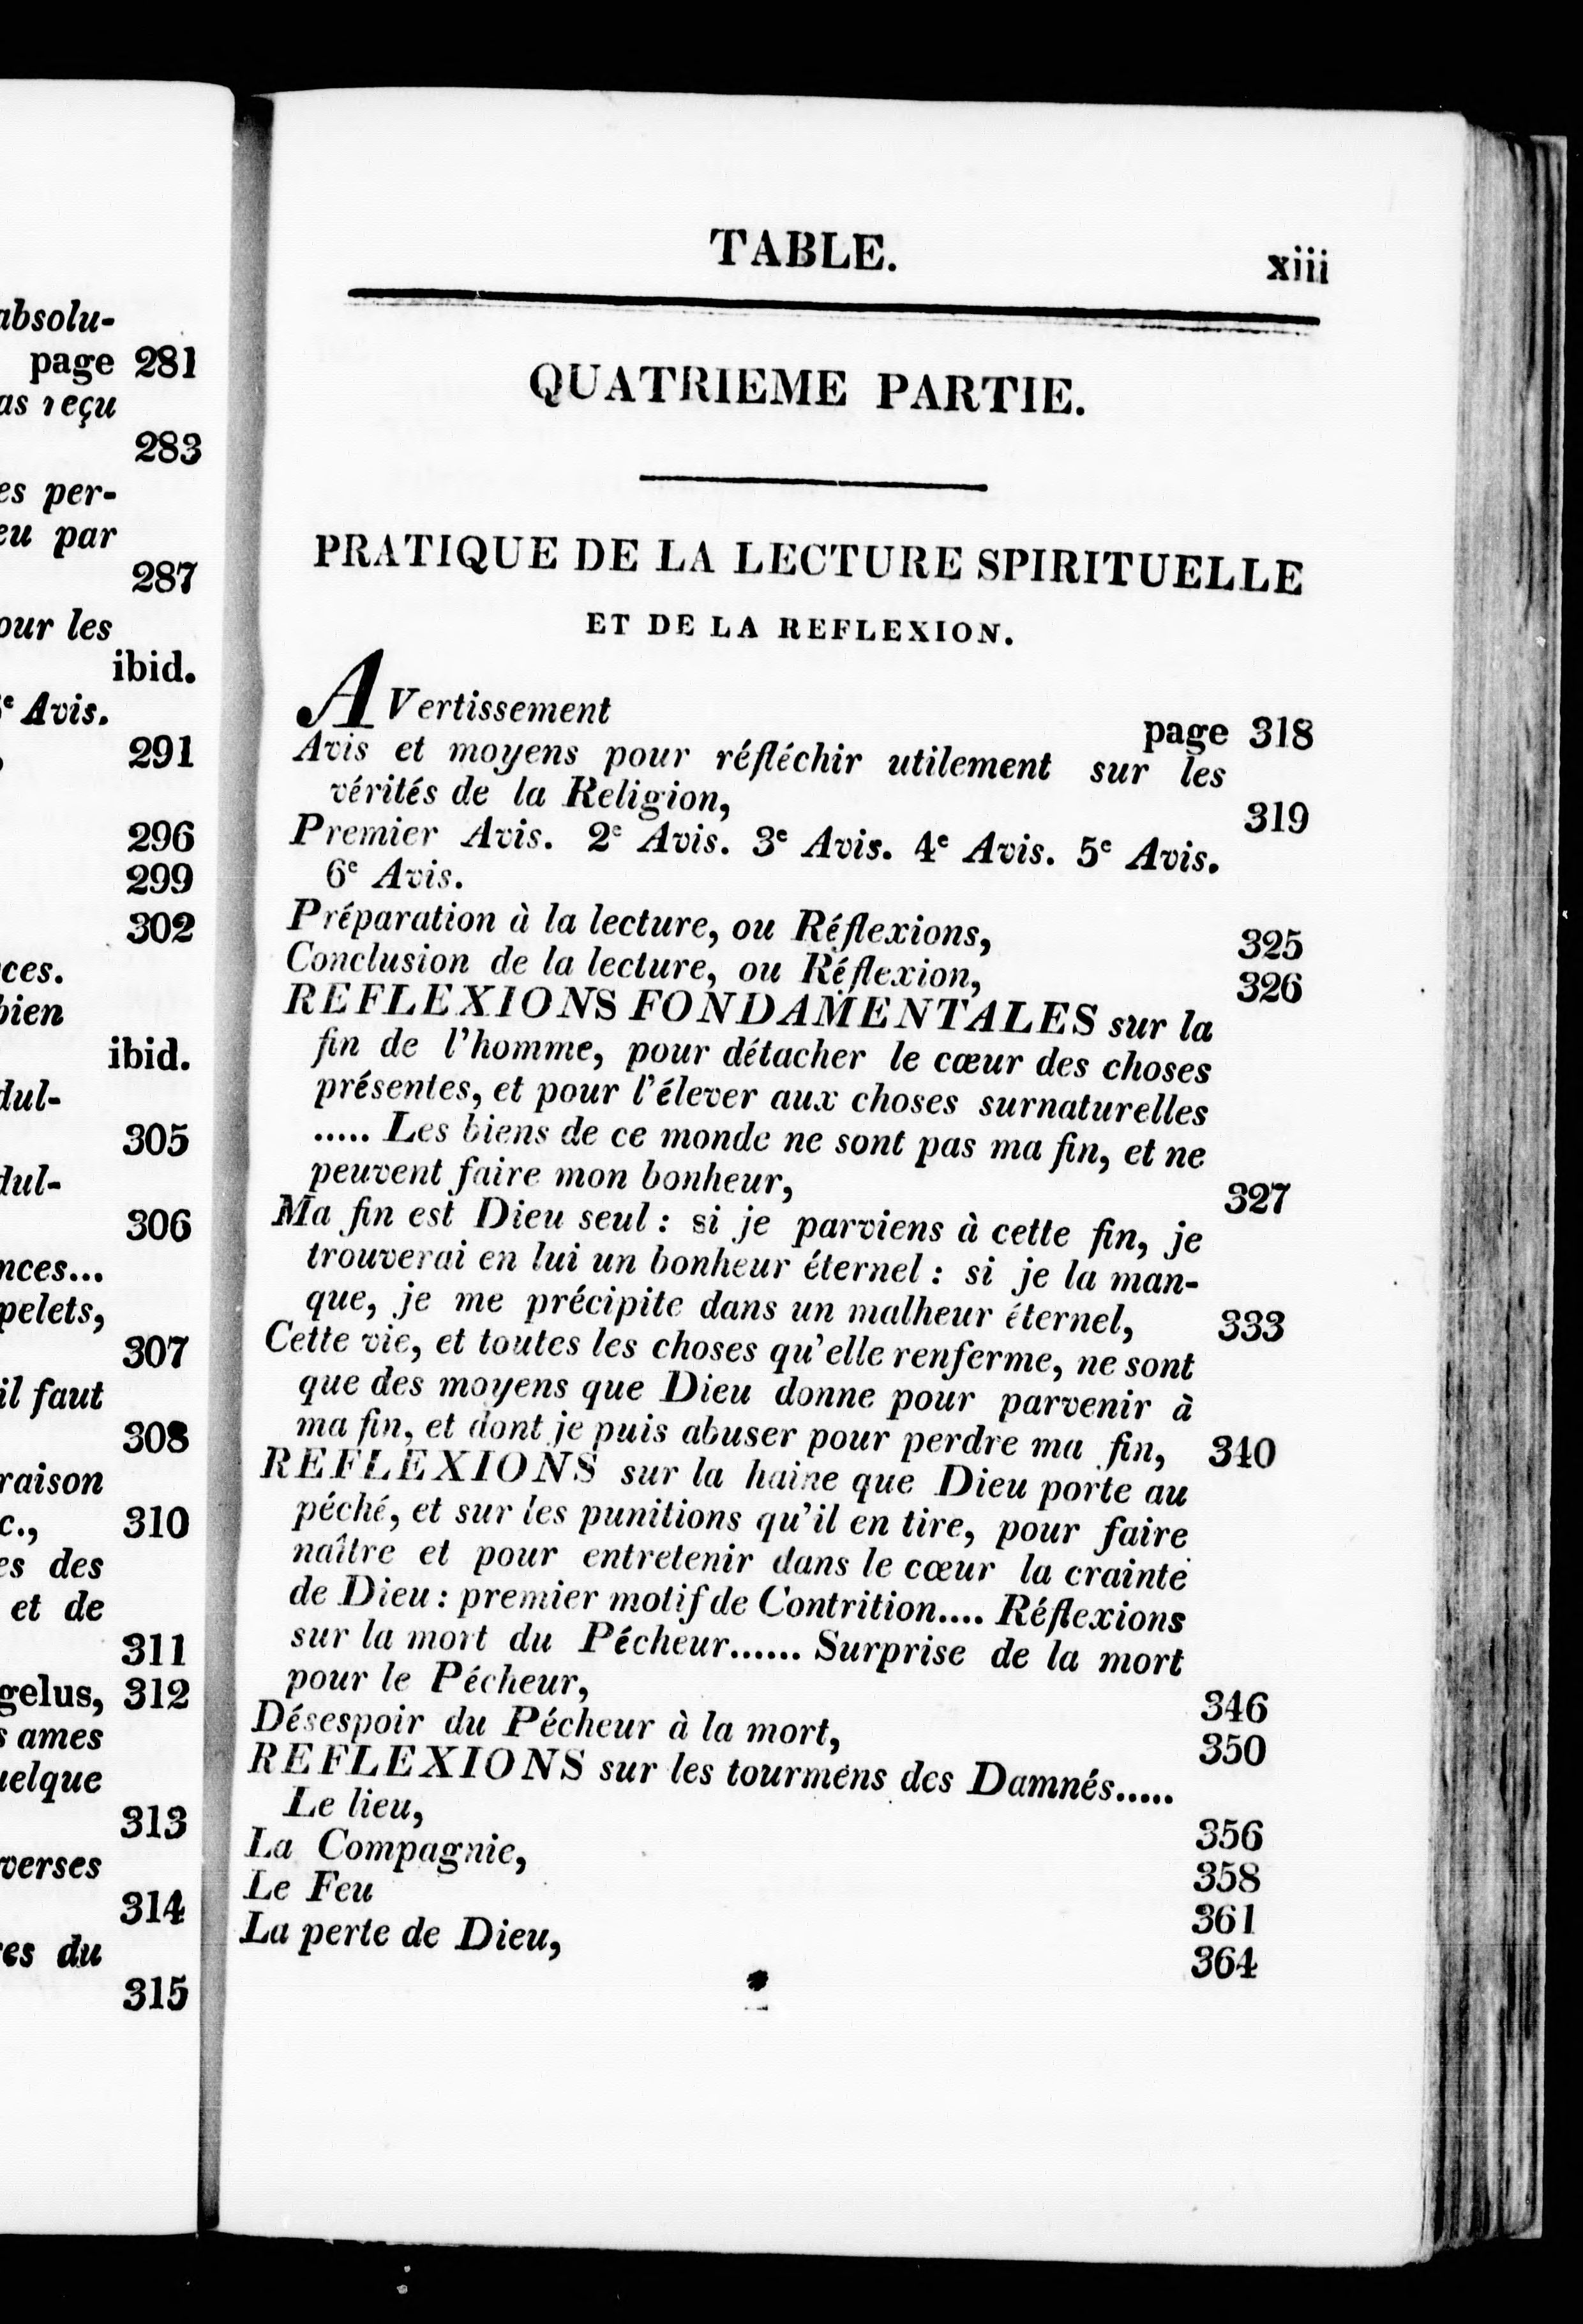 absolu-
page 281
as reçu
283
es per-
eu par
287
our les
ibid.
e Avis.
291
296
299
302
ces.
bien
ibid.
dul-
305
dul-
306
nces...
pelets,
307
il faut
308
raison
c., 310
es des
et de
311
gelus, 312
s ames
uelque
313
verses
314
res du
315
TABLE. xiii
QUATRIEME PARTIE.
PRATIQUE DE LA LECTURE SPIRITUELLE
ET DE LA REFLEXION.
AVertissement page 318
Avis et moyens pour réfléchir utilement sur les
vérités de la Religion, 319
Premier Avis. 2e Avis. 3e Avis. 4e Avis. 5e Avis.
6e Avis.
Préparation à la lecture, ou Réflexions, 325
Conclusion de la lecture, ou Réflexion, 326
REFLEXIONS FONDAMENTALES sur la
fin de l'homme, pour détacher le cœur des choses
présentes, et pour l'élever aux choses surnaturelles
..... Les biens de ce monde ne sont pas ma fin, et ne
peuvent faire mon bonheur, 327
Ma fin est Dieu seul : si je parviens à cette fin, je
trouverai en lui un bonheur éternel : si je la man-
que, je me précipite dans un malheur éternel, 333
Cette vie, et toutes les choses qu'elle renferme, ne sont
que des moyens que Dieu donne pour parvenir à
ma fin, et dont je puis abuser pour perdre ma fin, 340
REFLEXIONS sur la haine que Dieu porte au
péché, et sur les punitions qu'il en tire, pour faire
naître et pour entretenir dans le cœur la crainte
de Dieu : premier motif de Contrition.... Réflexions
sur la mort du Pécheur...... Surprise de la mort
pour le Pécheur, 346
Désespoir du Pécheur à la mort, 350
REFLEXIONS sur les tourmens des Damnés.....
Le lieu, 356
La Compagnie, 358
Le Feu 361
La perte de Dieu, 364